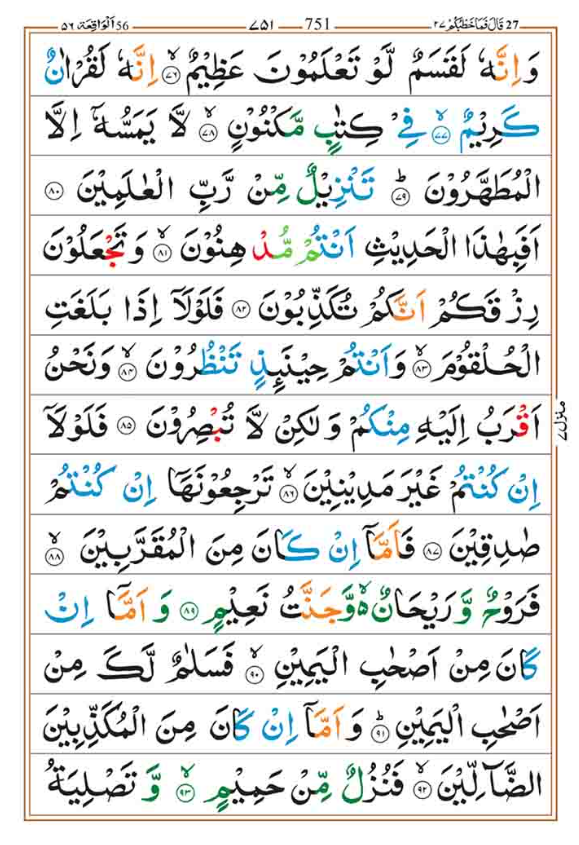 27 قَالَ فَمَا خَطْبُكُمْ ٢٧ 751 ٧٥١ 56 اَلْوَاقِعَة ٥٦
وَ اِنَّهٗ لَقَسَمٌ لَّوْ تَعْلَمُوْنَ عَظِيْمٌ ۙ‏﴿۷۶﴾ اِنَّهٗ لَقُرْاٰنٌ
كَرِيْمٌ ۙ‏﴿۷۷﴾ فِيْ كِتٰبٍ مَّكْنُوْنٍ ۙ‏﴿۷۸﴾ لَّا يَمَسُّهٗۤ اِلَّا
الْمُطَهَّرُوْنَ ؕ‏﴿۷۹﴾ تَنْزِيْلٌ مِّنْ رَّبِّ الْعٰلَمِيْنَ ‏﴿۸۰﴾
اَفَبِهٰذَا الْحَدِيْثِ اَنْتُمْ مُّدْهِنُوْنَ ۙ‏﴿۸۱﴾ وَ تَجْعَلُوْنَ
رِزْقَكُمْ اَنَّكُمْ تُكَذِّبُوْنَ ‏﴿۸۲﴾ فَلَوْلَاۤ اِذَا بَلَغَتِ
الْحُلْقُوْمَ ۙ‏﴿۸۳﴾ وَاَنْتُمْ حِيْنَئِذٍ تَنْظُرُوْنَ ۙ‏﴿۸۴﴾ وَنَحْنُ
اَقْرَبُ اِلَيْهِ مِنْكُمْ وَ لٰكِنْ لَّا تُبْصِرُوْنَ ‏﴿۸۵﴾ فَلَوْلَاۤ
منزل ٧
اِنْ كُنْتُمْ غَيْرَ مَدِيْنِيْنَ ۙ‏﴿۸۶﴾ تَرْجِعُوْنَهَاۤ اِنْ كُنْتُمْ
صٰدِقِيْنَ ‏﴿۸۷﴾ فَاَمَّاۤ اِنْ كَانَ مِنَ الْمُقَرَّبِيْنَ ۙ‏﴿۸۸﴾
فَرَوْحٌ وَّ رَيْحَانٌ ۙ۬ وَّ جَنَّتُ نَعِيْمٍ ‏﴿۸۹﴾ وَ اَمَّاۤ اِنْ
كَانَ مِنْ اَصْحٰبِ الْيَمِيْنِ ۙ‏﴿۹۰﴾ فَسَلٰمٌ لَّكَ مِنْ
اَصْحٰبِ الْيَمِيْنِ ؕ‏﴿۹۱﴾ وَ اَمَّاۤ اِنْ كَانَ مِنَ الْمُكَذِّبِيْنَ
الضَّآلِّيْنَ ۙ‏﴿۹۲﴾ فَنُزُلٌ مِّنْ حَمِيْمٍ ۙ‏﴿۹۳﴾ وَّ تَصْلِيَةُ